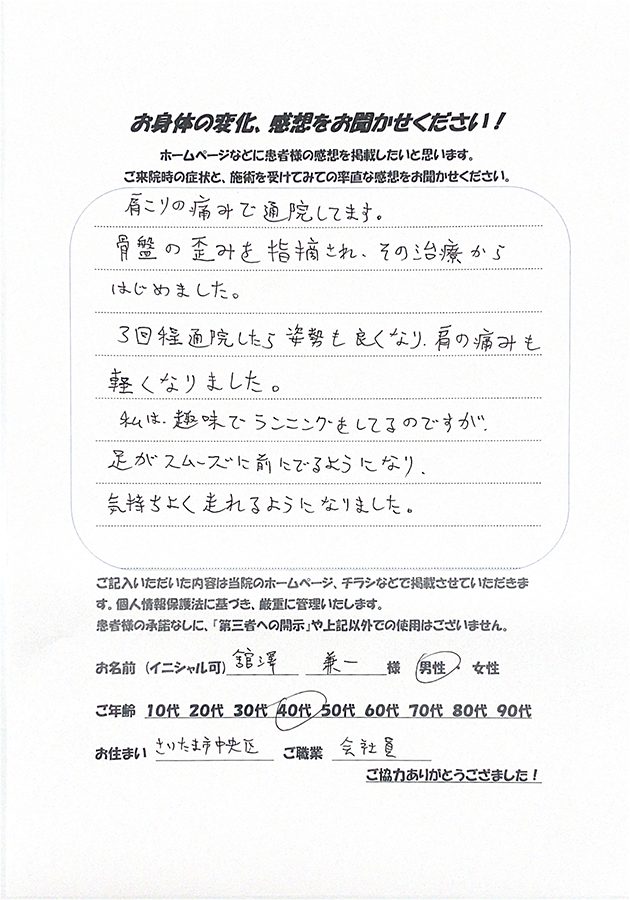 お身体の変化、感想をお聞かせください！
ホームページなどに患者様の感想を掲載したいと思います。
ご来院時の症状と、施術を受けてみての率直な感想をお聞かせください。
肩こりの痛みで通院してます。
骨盤の歪みを指摘され、その治療から
はじめました。
3回程通院したら姿勢も良くなり、肩の痛みも
軽くなりました。
私は、趣味でランニングをしてるのですが、
足がスムーズに前にでるようになり、
気持ちよく走れるようになりました。
ご記入いただいた内容は当院のホームページ、チラシなどで掲載させていただきま
す。個人情報保護法に基づき、厳重に管理いたします。
患者様の承諾なしに、「第三者への開示」や上記以外での使用はございません。
お名前（イニシャル可） 舘澤 兼一 様 男性・女性
ご年齢 10代 20代 30代 40代 50代 60代 70代 80代 90代
お住まい さいたま市中央区 ご職業 会社員
ご協力ありがとうござました！